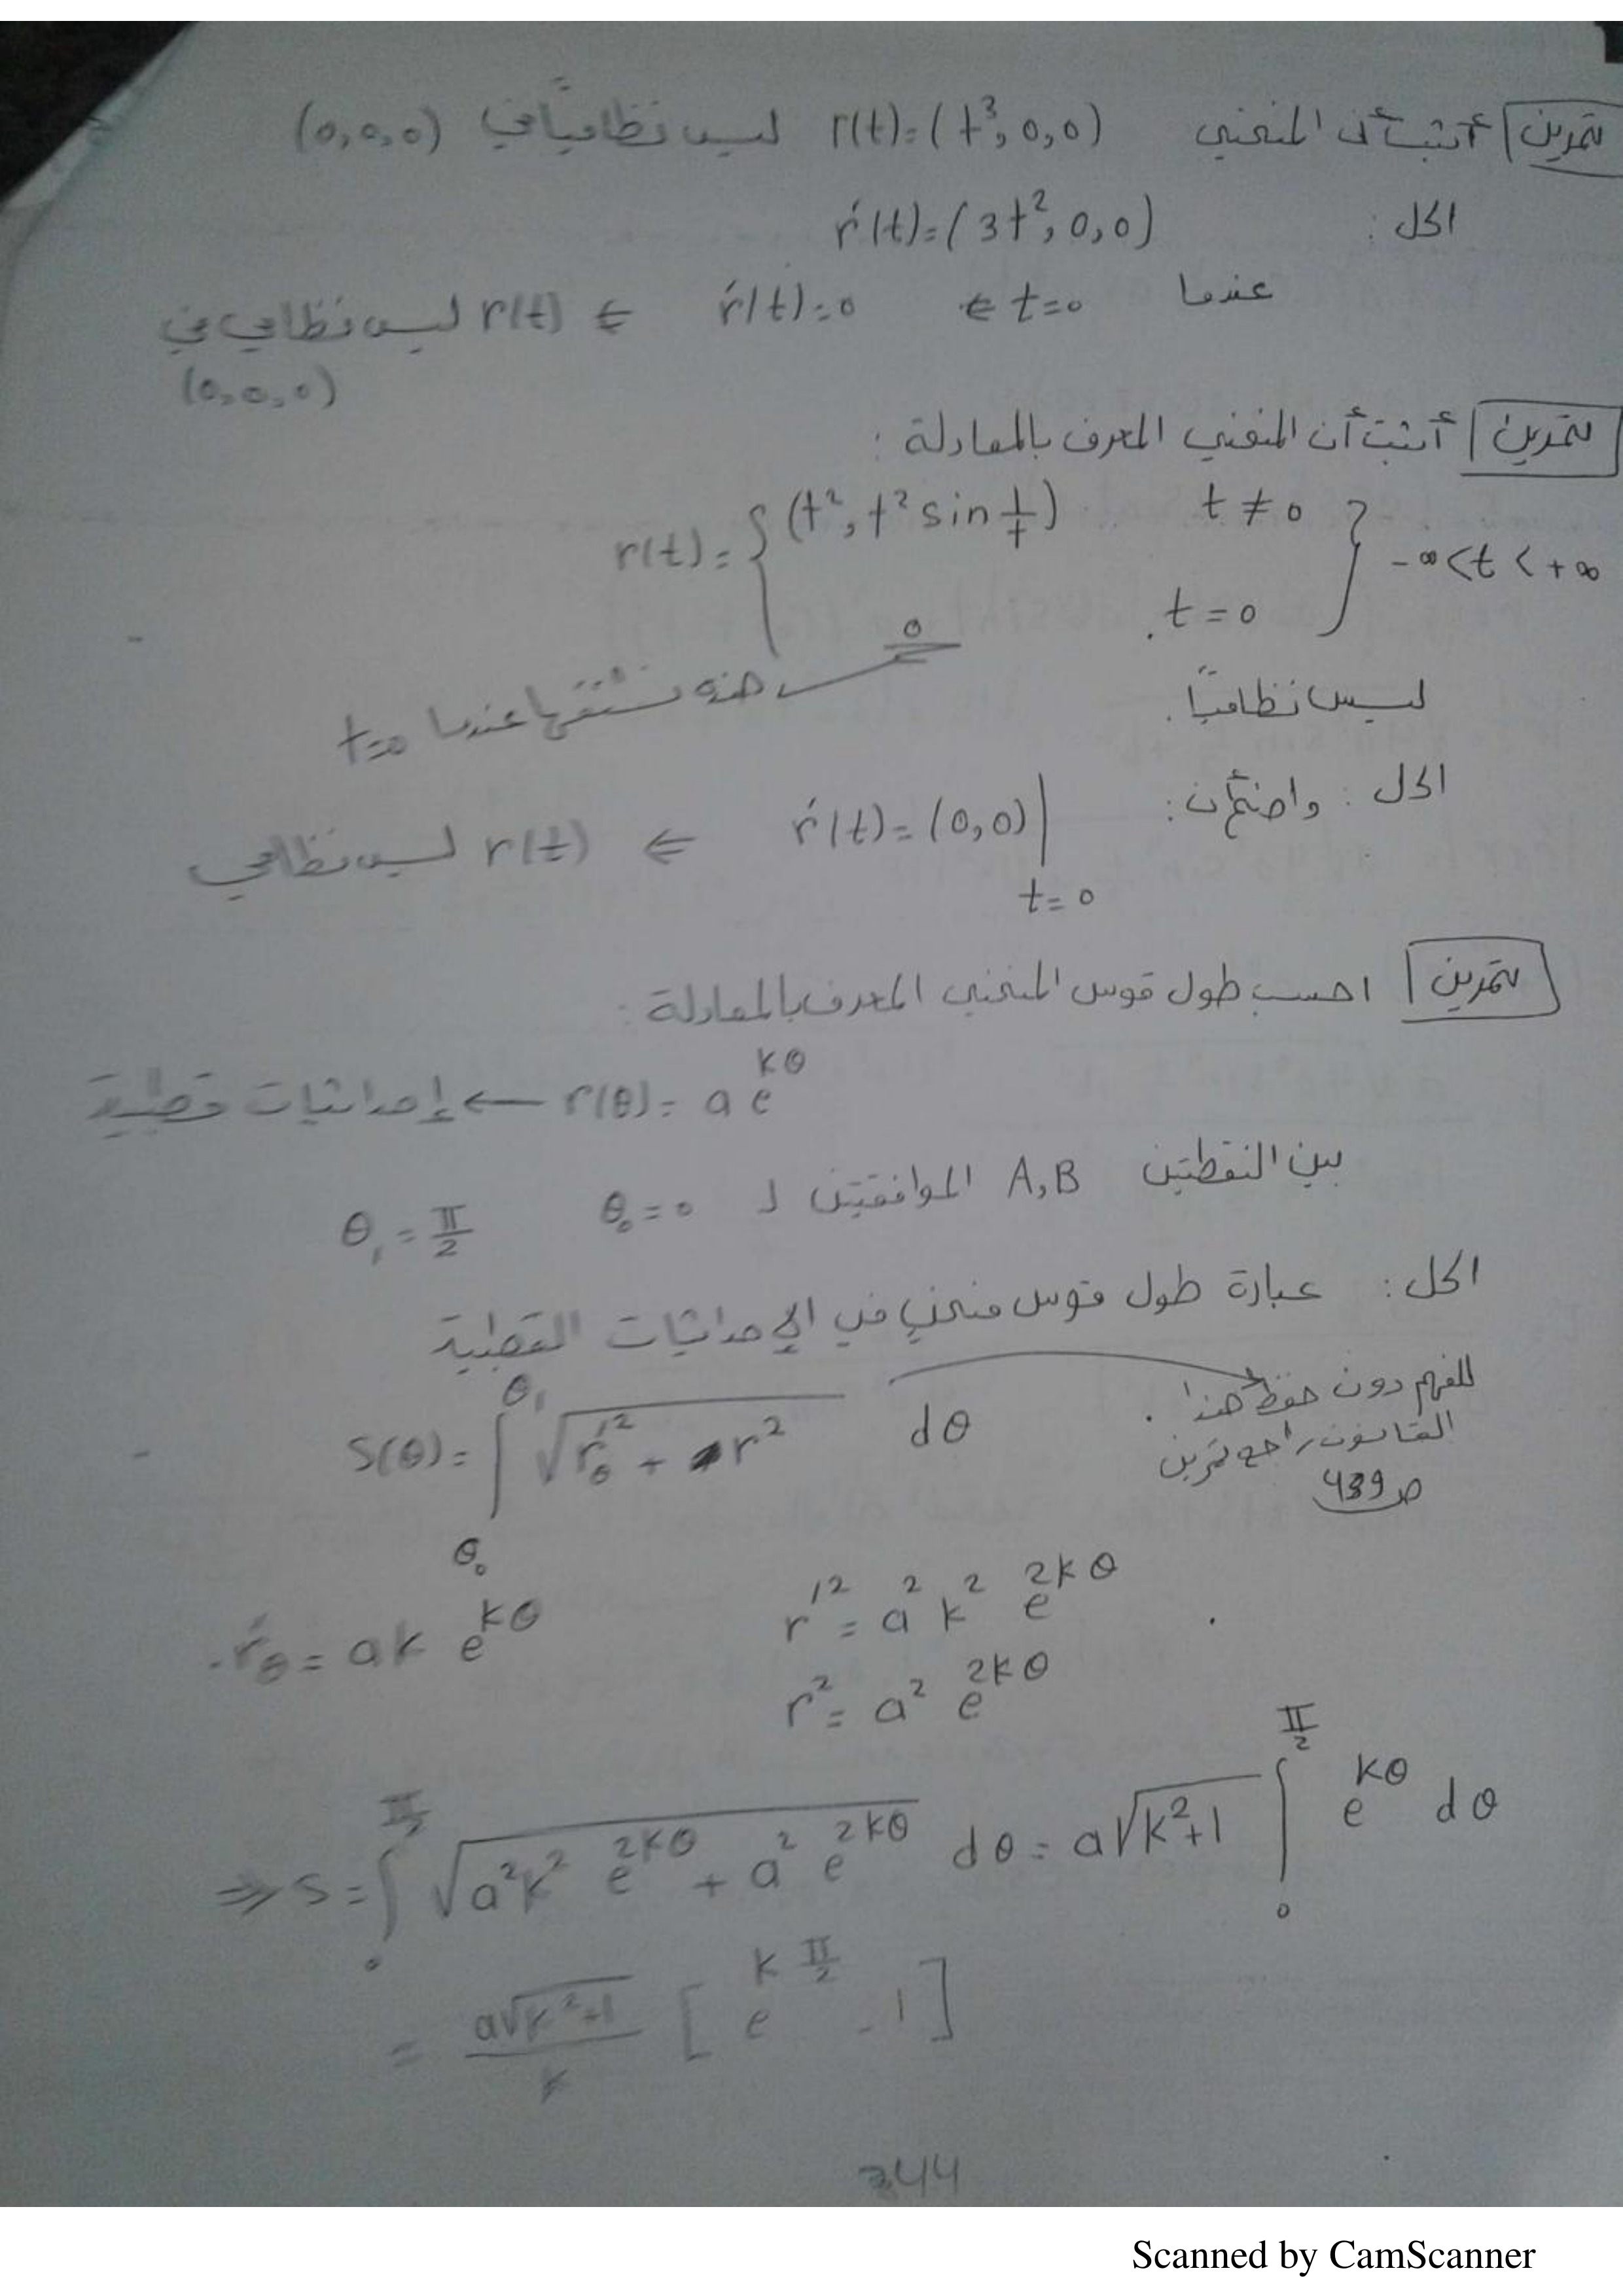 تمرين أثبت أن المنحني r(t)=(t³,0,0) ليس نظامياً في (0,0,0)
الحل: r'(t)=(3t²,0,0)
عندما t=0 ⇐ r'(t)=0 ⇐ r(t) ليس نظامي في
(0,0,0)
تمرين أثبت أن المنحني المعرف بالمعادلة:
r(t)={(t², t² sin 1/t) t≠0
0 t=0 } -∞<t<+∞
هذه نشتقها عندما t=0
ليس نظامياً.
الحل: واضح أن: r'(t)=(0,0)| t=0 ⇐ r(t) ليس نظامي
تمرين احسب طول قوس المنحني المعرف بالمعادلة:
r(θ)= a e^{kθ} ← إحداثيات قطبية
بين النقطتين A,B الموافقتين لـ θ₀=0 θ₁=π/2
الحل: عبارة طول قوس منحني في الإحداثيات القطبية
S(θ)= ∫_{θ₀}^{θ₁} √(r'_θ² + r²) dθ
للفهم دون حفظ هذا
القانون راجع تمرين
ص 439
r'_θ = ak e^{kθ} r'² = a² k² e^{2kθ}
r² = a² e^{2kθ}
⇒ S = ∫_0^{π/2} √(a²k² e^{2kθ} + a² e^{2kθ}) dθ = a√(k²+1) ∫_0^{π/2} e^{kθ} dθ
= a√(k²+1)/k [e^{kπ/2} - 1]
344
Scanned by CamScanner